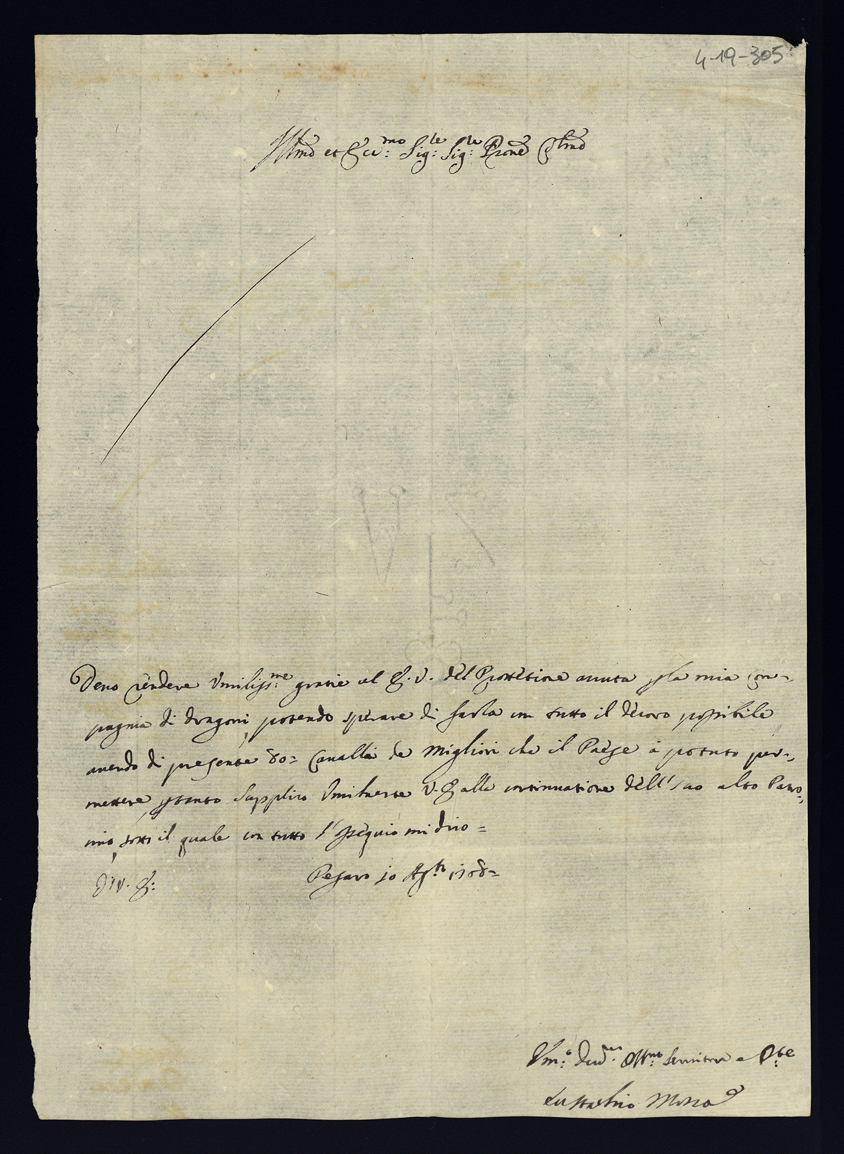 4-19-305
Illmo et Ecc.mo Sig.re Sig.re Prone Colmo
Deuo rendere Vmiliss.me grazie al E. V. del Protetione auuta p la mia com=
pagnia di dragoni, potendo sperare di farla con tutto il decoro possibile
auendo di presente 80= Caualla de migliori che il Paese à potuto per=
mettere, ptanto Supplico Vmilmente V. E. alla continuatione dell' suo alto Patro,
inio, sotto il quale con tutto l'ossequio mi dico=
Di V. E:
Pesaro 10 Ag.to 1708=
Vm.o Deu.mo Obb.mo Seruitore
Mosca